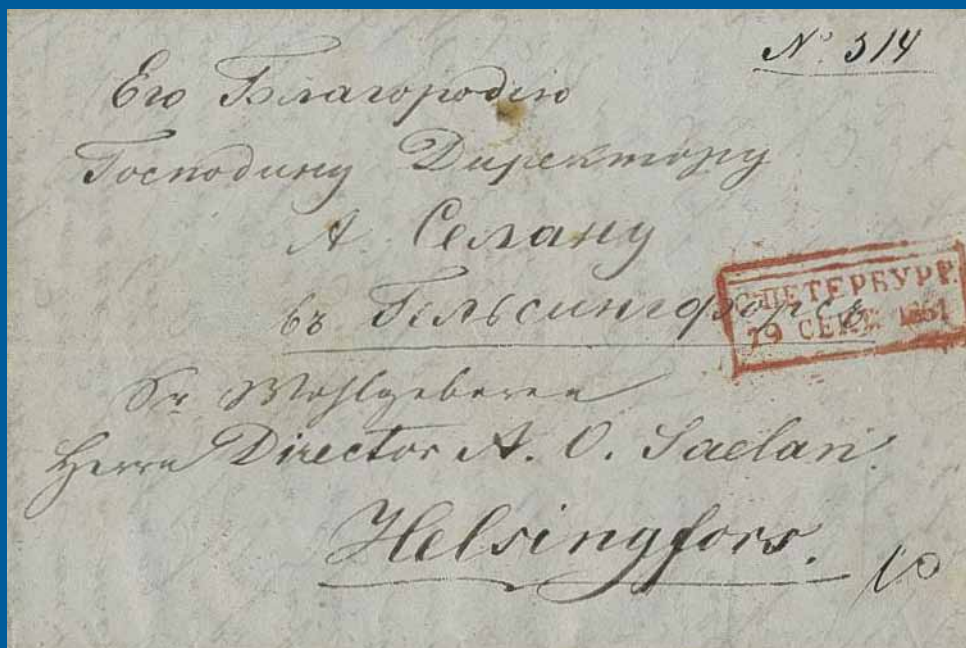 № 314
Его Благородію
Господину Директору
А. Селану
въ Гельсингфорсѣ
С.ПЕТЕРБУРГ.
19 СЕНТ. 1851
Sr Wohlgeboren
Herrn Director A. O. Saelan.
Helsingfors.
10